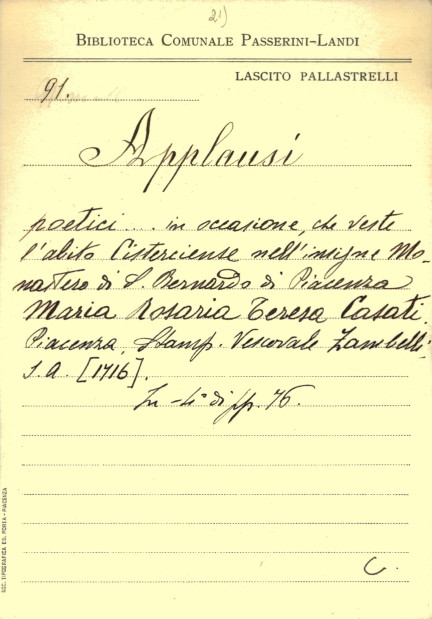 21)
BIBLIOTECA COMUNALE PASSERINI-LANDI
LASCITO PALLASTRELLI
91.
Applausi
poetici ... in occasione, che veste
l'abito Cisterciense nell'insigne Mo-
nastero di S. Bernardo di Piacenza
Maria Rosaria Teresa Casati.
Piacenza, Stamp. Vescovale Zambelli,
s.a. [1716].
In-4° di pp. 76.
C.
SOC. TIPOGRAFICA ED. PORTA - PIACENZA